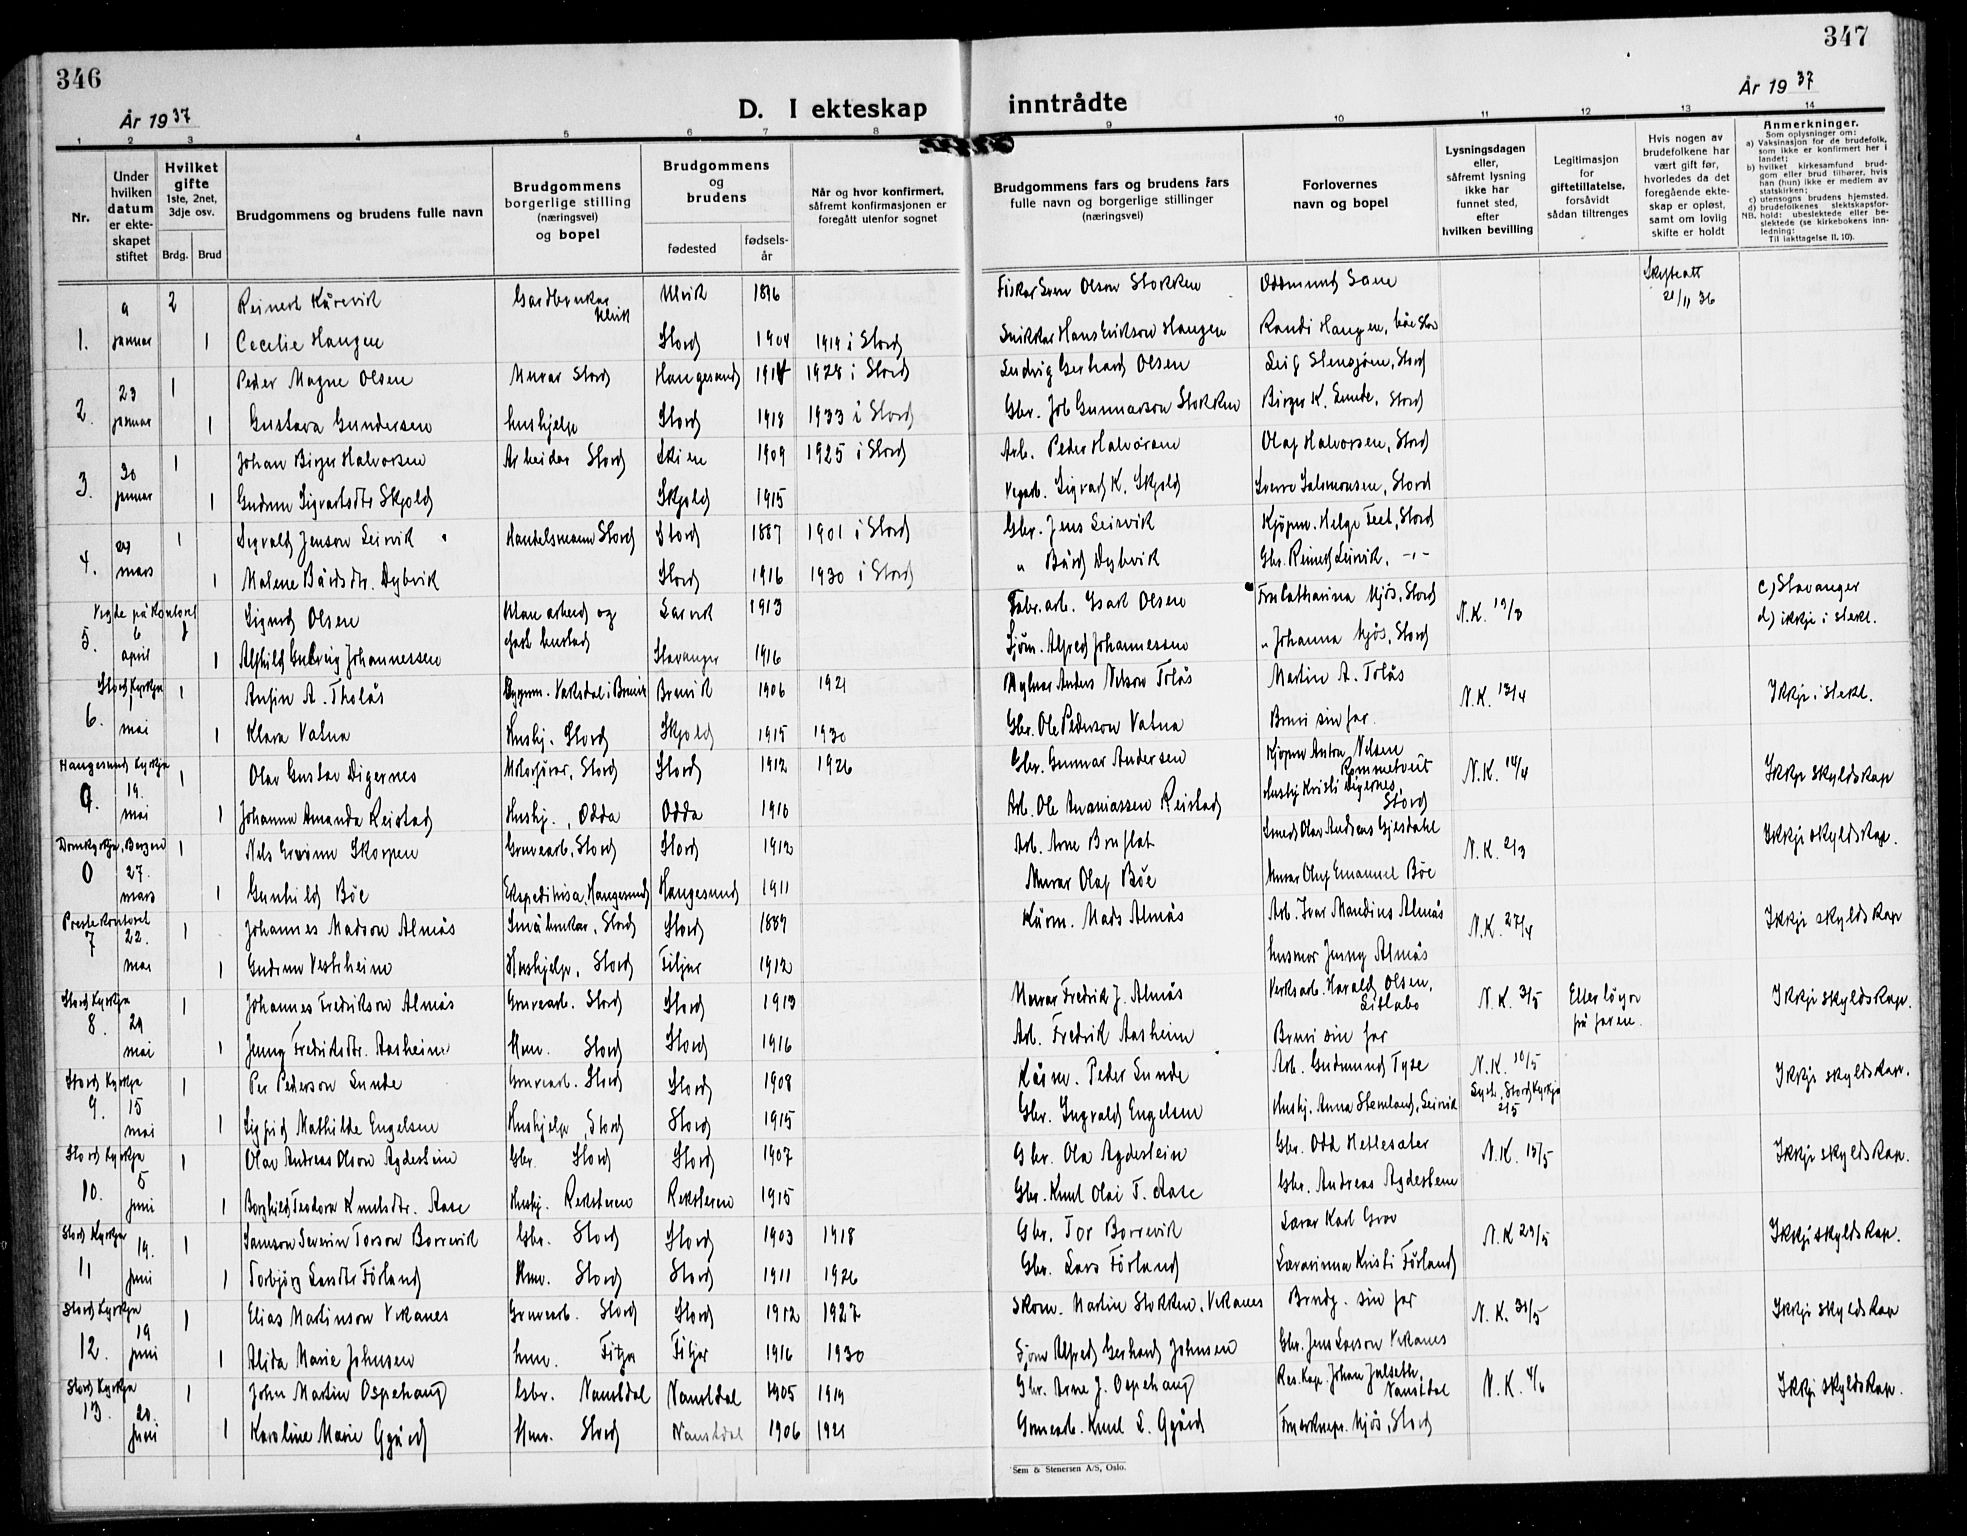 346
347
År 1937
År 1937
D. I ekteskap inntrådte
1 2 3 4 5 6 7 8 9 10 11 12 13 14
Nr.
Under hvilken datum er ekteskapet stiftet
Hvilket gifte 1ste, 2net, 3dje osv.
Brdg. Brud
Brudgommens og brudens fulle navn
Brudgommens borgerlige stilling (næringsvei) og bopel
Brudgommens og brudens
fødested
fødselsår
Når og hvor konfirmert, såfremt konfirmasjonen er foregått utenfor sognet
Brudgommens fars og brudens fars fulle navn og borgerlige stillinger (næringsvei)
Forlovernes navn og bopel
Lysningsdagen eller, såfremt lysning ikke har funnet sted, efter hvilken bevilling
Legitimasjon for giftetillatelse, forsåvidt sådan tiltrenges
Hvis nogen av brudefolkene har vært gift før, hvorledes da det foregående ekteskap er opløst, samt om lovlig skifte er holdt
Anmerkninger.
Som oplysninger om:
a) Vaksinasjon for de brudefolk, som ikke er konfirmert her i landet;
b) hvilket kirkesamfund brudgom eller brud tilhører, hvis han (hun) ikke er medlem av statskirken;
c) utensogns brudens hjemsted.
d) brudefolkenes slektskapsforhold: ubeslektede eller beslektede (se kirkebokens innledning:
NB. Til iakttagelse II. 10).
9 2 Reinert Kårevik Gardbrukar Ulvik Ulvik 1896 Fiskar Sven Olson Stokken Oddmund Sane Skifteatt 21/11 36
1. januar 1 Cecilie Haugen Stord 1904 1919 i Stord Snikkar Hans Erikson Haugen Randi Haugen,
23 1 Peder Magne Olsen Murar Stord Haugesund 1914 1928 i Stord Ludvig Gerhard Olsen Leif Stensjøen, Stord
2. januar 1 Gustava Gundersen hushjelp Stord 1918 1933 i Stord Gbr. Job Gunnarson Stokken Birger K. Lunde, Stord
30 1 Johan Birger Halvorsen Arbeidar Stord Skien 1909 1925 i Stord Arb. Peder Halvorsen Olaf Halvorsen, Stord
3. januar 1 Gudrun Sigvartsdtr Skjold Skjold 1915 Vegarb. Sigvard K. Skjold Sverre Salomonsen, Stord
24 1 Sigvald Jenson Leirvik Handelsmann Stord Stord 1887 1901 i Stord Gbr. Jens Leirvik Kjøpm. Helge Teet, Stord
4. mars 1 Malene Bårdsdtr. Dybvik Stord 1916 1930 i Stord " Bård Dybvik Gbr. Reinert Leirvik, -"-
Vigde på kontoret
5. 6 1 Sigurd Olsen Larvik 1913 Fabr.arb. Isak Olsen Fru Catharina Mjøs, Stord N.K. 19/3 c) Stavanger
april 1 Alfhild Gudvig Johannessen Stavanger 1916 Sjøm. Alfred Johannessen " Johanna Mjøs, Stord d) ikkje i slekt.
Stord Kyrkja
6. 1 mai 1 Anfin A. Tholås Byggm. Vaksdal i Bruvik Bruvik 1906 1921 Mylnar Anders Nilson Tolås Martin A. Tolås N.K. 13/4 Ikkje i slekt.
1 Klara Vatna Hushj. Stord Skjold 1915 1930 Gbr. Ole Pederson Vatna Bruri sin far.
Haugesund Kyrkja
0. 19. 1 Olav Gustav Digernes Motorførar, Stord Stord 1912 1926 Gbr. Gunnar Andersen Kjøpm Anton Nilsen Rommetveit N.K. 14/4 Ikkje skyldskap
mai 1 Johanna Amanda Reistad Hushj., Odda Odda 1910 Arb. Ole Ananiassen Reistad Hushj Kristi Digernes, Stord
Domkyrkja, Bergen
0 27. 1 Nils Skorpen Gruvearb, Stord Stord 1912 Arb. Arne Bruflat Smed Olav Andreas Gjesdahl N.K. 2/3 Ikkje skyldskap.
mars 1 Gunhild Bøe Ekspeditrisa, Haugesund Haugesund 1911 Murar Olaf Bøe Murar Oluf Emanuel Bøe
Prestekontoret
7 22. 1 Johannes Madson Almås Småbrukar, Stord Stord 1889 Kårm. Mads Almås Arb. Ivar Mandius Almås N.K. 27/4 Ikkje skyldskap
mai 1 Gudrun Vestrheim Hushjelp, Stord Fitjar 1912 husmor Jenny Almås
Stord Kyrkja
8. 29 1 Johannes Fredrikson Almås Gruvearb. Stord Stord 1913 Murar Fredrik J. Almås Verksarb. Harald Olsen, Litlabo N.K. 3/5 Etter løyve frå faren. Ikkje skyldskap.
mai 1 Jenny Fredriksdtr. Aasheim Hmv. Stord Stord 1916 Arb. Fredrik Aasheim Bruri sin far
Stord Kyrkja
9. 15 1 Per Pederson Lunde Gruvearb. Stord Stord 1908 Kårm. Peder Lunde Arb. Gudmund Tyse N.K. 10/5 Ikkje skyldskap.
mai 1 Sigrid Mathilde Engelsen Hushjelp, Stord Stord 1915 Gbr. Ingvald Engelsen Hushj. Anna Stemland, Leirvik Lyst. Stord Kyrkja 2/5
Stord Kyrkja
10. 5 1 Olav Andreas Olson Agdestein Gbr. Stord Stord 1907 Gbr. Ola Agdestein Gbr. Odd Hetlesater N.K. 13/5 Ikkje skyldskap.
juni 1 Borghild Teodora Knutsdtr. Aase Hushj. Reksteren Reksteren 1915 Gbr. Knut Olai T. Aase Gbr. Andreas Agdestein
Stord Kyrkja
11 19. 1 Samson Severin Torson Borrevik Gbr. Stord Stord 1903 1918 Gbr. Tor Borrevik Lærar Karl Grov N.K 29/5 Ikkje skyldskap.
juni 1 Torbjørg Larsdtr Førland Hmv. Stord Stord 1911 1926 Gbr. Lars Førland Lærarinna Kristi Førland
Stord Kyrkja
12. 19 1 Elias Martinson Vikanes Gruvearb. Stord Stord 1912 1927 Skom. Martin Stokken, Vikanes Brudg. sin far N.K. 31/5 Ikkje skyldskap
juni 1 Alida Marie Johnsen hmv. Fitjar Fitjar 1916 1930 Sjøm Alfred Gerhard Johnsen Gbr. Jens Larson Vikanes
Stord Kyrkja
13. 20. 1 John Martin Ospehaug Gbr. Namsdal Namsdal 1905 1919 Gbr. Arne J. Ospehaug Res. Kap. Johan Julseth, Namsdal N.K. 4/6 Ikkje skyldskap.
juni 1 Karoline Marie Hmv. Stord Namsdal 1906 1921 Gruvearb. Knut L. Mjøs, Stord
Sem & Stenersen A/S, Oslo.